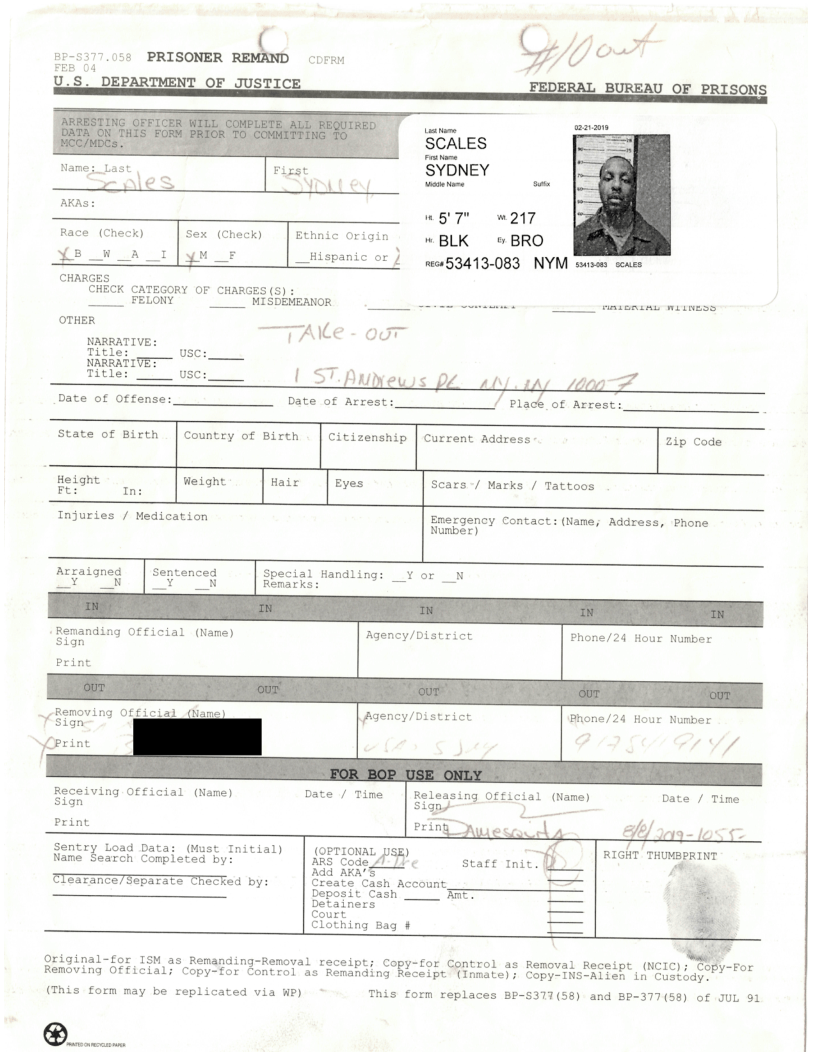 #10 out
BP-S377.058 PRISONER REMAND CDFRM
FEB 04
U.S. DEPARTMENT OF JUSTICE FEDERAL BUREAU OF PRISONS
ARRESTING OFFICER WILL COMPLETE ALL REQUIRED
DATA ON THIS FORM PRIOR TO COMMITTING TO
MCC/MDCs.
Last Name 02-21-2019
SCALES
First Name
SYDNEY
Middle Name Suffix
Ht. 5' 7" Wt. 217
Hr. BLK Ey. BRO
REG# 53413-083 NYM 53413-083 SCALES
Name: Last First
Scales SYDNEY
AKAs:
Race (Check) Sex (Check) Ethnic Origin
X B __W __A __I X M __F __Hispanic or
CHARGES
CHECK CATEGORY OF CHARGES(S):
_____ FELONY _____ MISDEMEANOR _____ CIVIL CONTEMPT _____ MATERIAL WITNESS
OTHER TAKE-OUT
NARRATIVE:
Title: _____ USC:_____
NARRATIVE:
Title: _____ USC:_____ 1 ST. Andrews PL NY. NY 10007
Date of Offense:_____ Date of Arrest:_____ Place of Arrest:_____
State of Birth Country of Birth Citizenship Current Address Zip Code
Height Weight Hair Eyes Scars / Marks / Tattoos
Ft: In:
Injuries / Medication Emergency Contact:(Name, Address, Phone
Number)
Arraigned Sentenced Special Handling: __Y or __N
__Y __N __Y __N Remarks:
IN IN IN IN IN
Remanding Official (Name) Agency/District Phone/24 Hour Number
Sign
Print
OUT OUT OUT OUT OUT
Removing Official (Name) Agency/District Phone/24 Hour Number
X Sign
X Print USA-SDNY 9175419141
FOR BOP USE ONLY
Receiving Official (Name) Date / Time Releasing Official (Name) Date / Time
Sign Sign
Print Print 8/8/2019-1055
Sentry Load Data: (Must Initial) (OPTIONAL USE) RIGHT THUMBPRINT
Name Search Completed by: ARS Code Staff Init.
Add AKA's
Clearance/Separate Checked by: Create Cash Account
Deposit Cash _____ Amt.
Detainers
Court
Clothing Bag #
Original-for ISM as Remanding-Removal receipt; Copy-for Control as Removal Receipt (NCIC); Copy-For
Removing Official; Copy-for Control as Remanding Receipt (Inmate); Copy-INS-Alien in Custody.
(This form may be replicated via WP) This form replaces BP-S377(58) and BP-377(58) of JUL 91
PRINTED ON RECYCLED PAPER